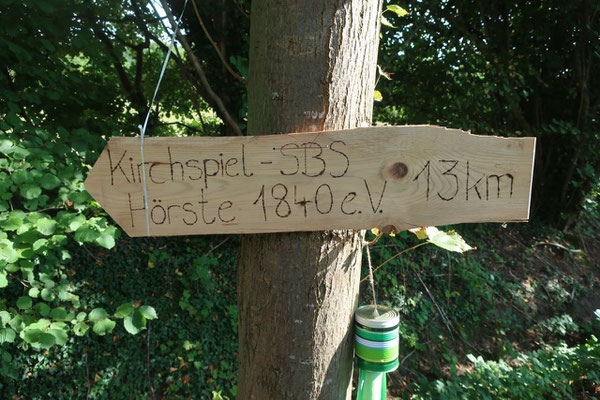 Kirchspiel-SBS
Hörste 1840 e.V. 13km